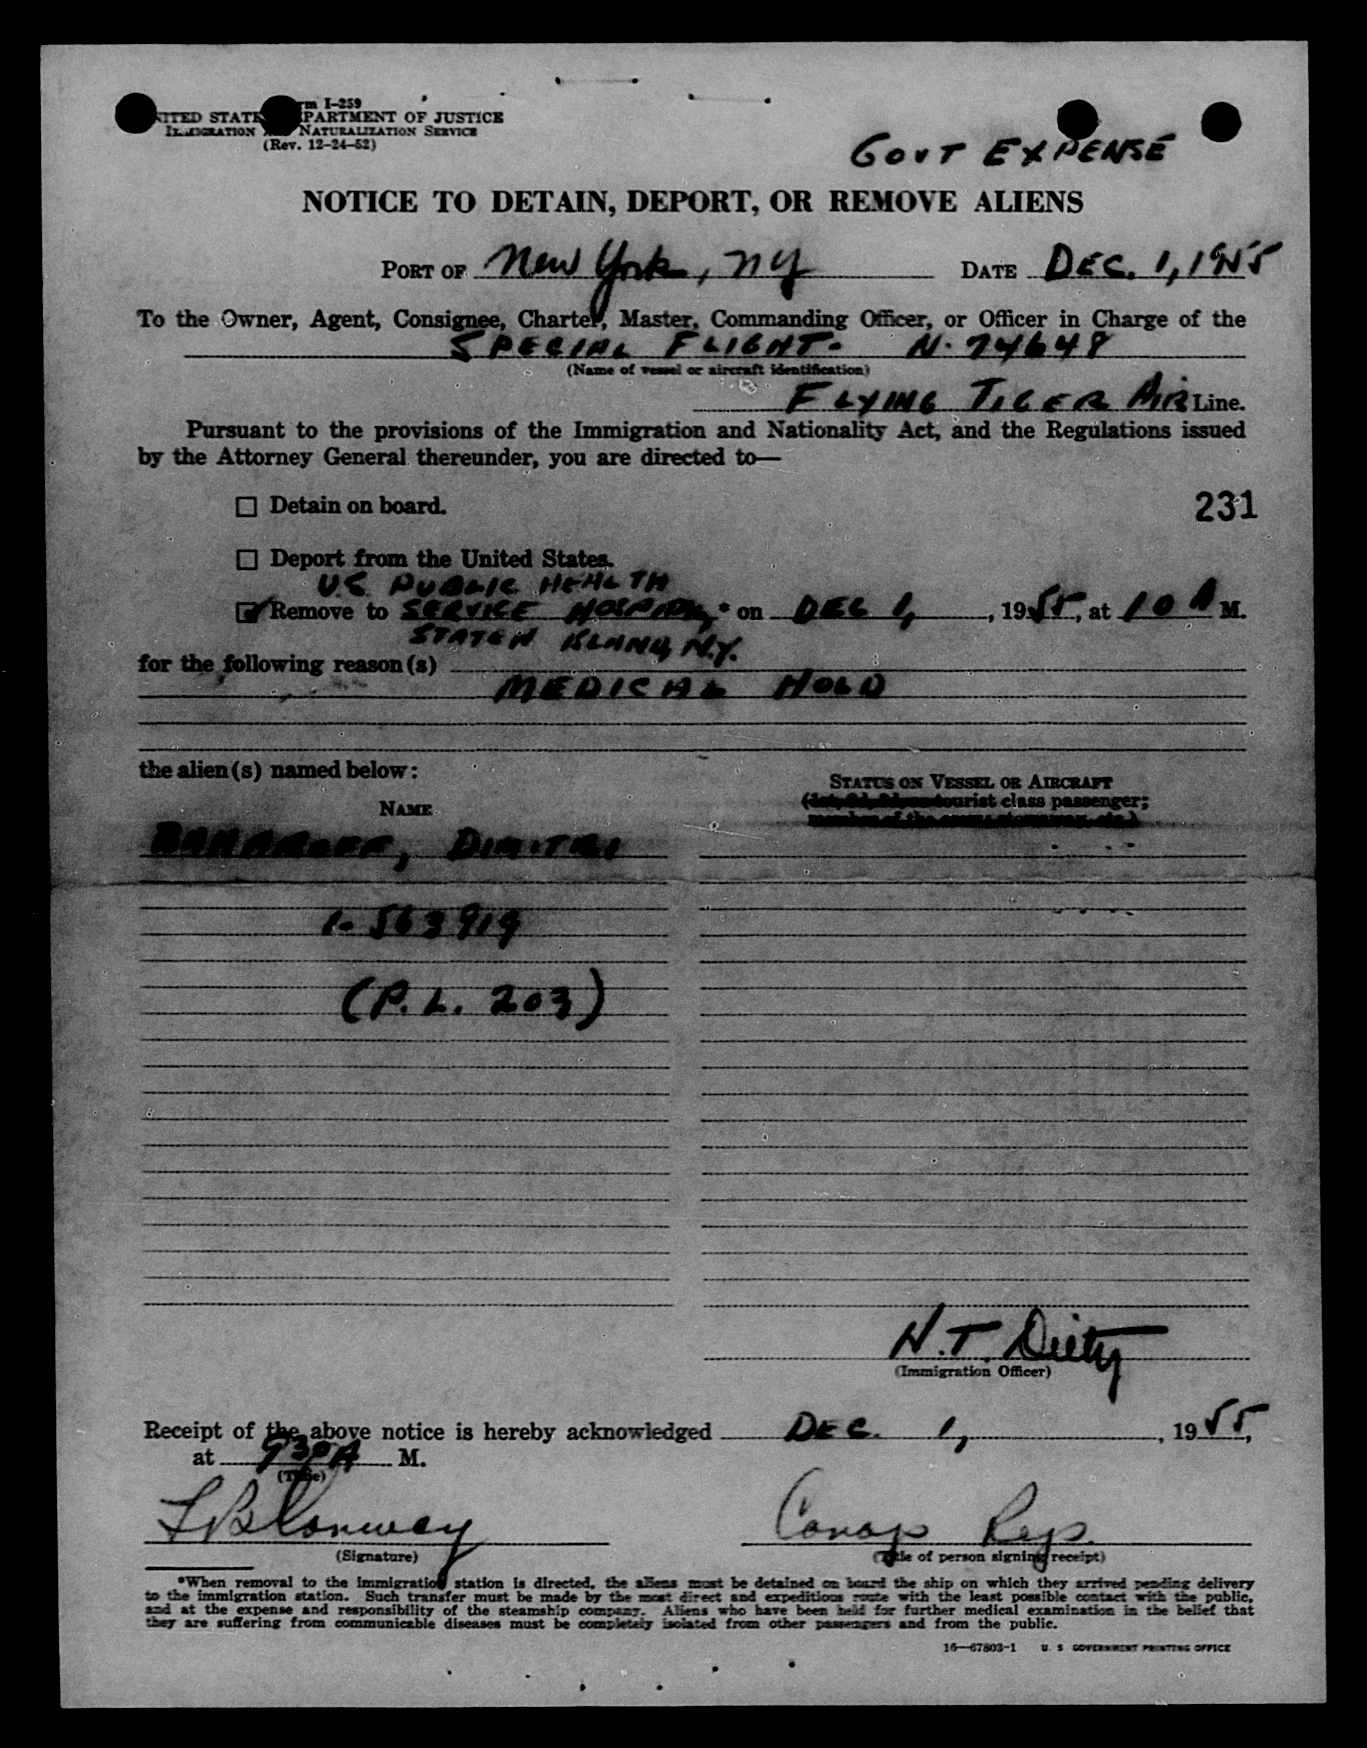 Form I-259
UNITED STATES DEPARTMENT OF JUSTICE
IMMIGRATION AND NATURALIZATION SERVICE
(Rev. 12-24-52)
GOVT EXPENSE
NOTICE TO DETAIN, DEPORT, OR REMOVE ALIENS
PORT OF New York, NY DATE DEC. 1, 1955
To the Owner, Agent, Consignee, Charter, Master, Commanding Officer, or Officer in Charge of the
SPECIAL FLIGHT - N. 74648
(Name of vessel or aircraft identification)
FLYING TIGER AIR Line.
Pursuant to the provisions of the Immigration and Nationality Act, and the Regulations issued
by the Attorney General thereunder, you are directed to—
☐ Detain on board.
231
☐ Deport from the United States.
U.S. PUBLIC HEALTH
☑ Remove to SERVICE HOSPITAL,* on DEC 1, , 1955, at 10 A M.
STATEN ISLAND, N.Y.
for the following reason(s)
MEDICAL HOLD
the alien(s) named below:
STATUS ON VESSEL OR AIRCRAFT
(1st, 2d, 3d, or tourist class passenger;
NAME
member of the crew, stowaway, etc.)
DIMITRI
1-563919
(P.L. 203)
H.T. Dietz
(Immigration Officer)
Receipt of the above notice is hereby acknowledged DEC. 1, , 1955,
at 930 A M.
(Time)
Conway
(Signature)
(Title of person signing receipt)
*When removal to the immigration station is directed, the aliens must be detained on board the ship on which they arrived pending delivery
to the immigration station. Such transfer must be made by the most direct and expeditious route with the least possible contact with the public,
and at the expense and responsibility of the steamship company. Aliens who have been held for further medical examination in the belief that
they are suffering from communicable diseases must be completely isolated from other passengers and from the public.
16—67803-1 U. S. GOVERNMENT PRINTING OFFICE